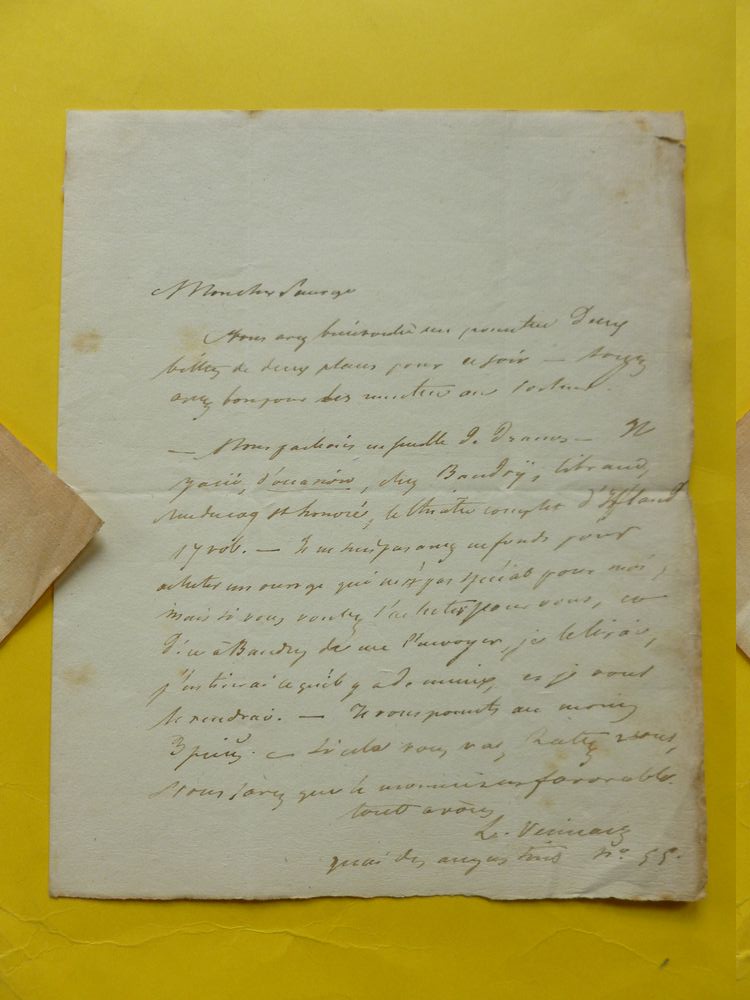 Mon cher Sauvage
Vous avez bien voulu me promettre Deux
billets de deux places pour ce soir — Soyez
assez bon pour les remettre au Porteur.
— Nous parlions ensemble de Drames — Il
y a ici, d'occasion, chez Baudry, libraire,
rue du coq St honoré, le théâtre complet d'Iffland
17 vol. — Je ne suis pas assez en fonds pour
acheter un ouvrage qui n'est pas spécial pour moi;
mais si vous voulez l'acheter pour vous, et
dire à Baudry de me l'envoyer, je le lirai,
j'extrairai ce qu'il y a de mieux, et je vous
le rendrai. — Je vous promets au moins
3 pièces. — Si cela vous va, hâtez vous,
Vous savez que le moment est favorable.
tout à vous
L.
quai des augustins n.º 55.